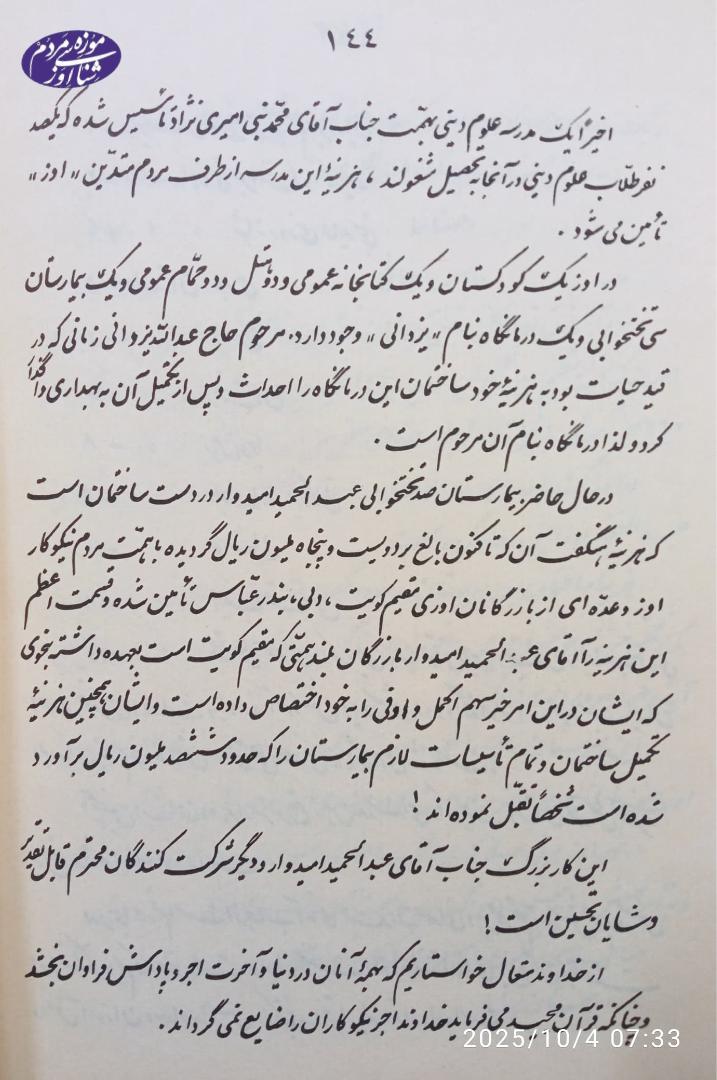 ۱۴۴
موزه مردم شناسی اوز
اخیراً یک مدرسه علوم دینی بهمّت جناب آقای محمّد نبی امیری نژاد تأسیس شده که یکصد
نفر طلّاب علوم دینی در آنجا به تحصیل مشغولند ، هزینهٔ این مدرسه از طرف مردم متدیّن «اوز»
تأمین می شود .
در اوز یک کودکستان و یک کتابخانه عمومی و دو هتل و دو حمّام عمومی و یک بیمارستان
سی تختخوابی و یک درمانگاه بنام «یزدانی» وجود دارد . مرحوم حاج عبدالله یزدانی زمانی که در
قید حیات بود به هزینهٔ خود ساختمان این درمانگاه را احداث و پس از تکمیل آن به بهداری واگذار
کرد و لذا درمانگاه بنام آن مرحوم است .
در حال حاضر بیمارستان صد تختخوابی عبدالحمید امیدوار در دست ساختمان است
که هزینهٔ هنگفت آن که تا کنون بالغ بر دویست و پنجاه ملیون ریال گردیده با همّت مردم نیکوکار
اوز و عدّه ای از بازرگانان اوزی مقیم کویت ، دبی ، بندرعبّاس تأمین شده و قسمت اعظم
این هزینه را آقای عبدالحمید امیدوار بازرگان بلند همّتی که مقیم کویت است بعهده داشته بنحوی
که ایشان در این امر خیر سهم اکمل و اوفی را به خود اختصاص داده است و ایشان همچنین هزینهٔ
تکمیل ساختمان و تمام تأسیسات لازم بیمارستان را که حدود ششصد ملیون ریال برآورد
شده است شخصاً تقبّل نموده اند !
این کار بزرگ جناب آقای عبدالحمید امیدوار و دیگر شرکت کنندگان محترم قابل تقدیر
و شایان تحسین است !
از خداوند متعال خواستاریم که بهمهٔ آنان در دنیا و آخرت اجر و پاداش فراوان بخشد
و چنانکه قرآن مجید می فرماید خداوند اجر نیکوکاران را ضایع نمی گرداند .
2025/10/4 07:33